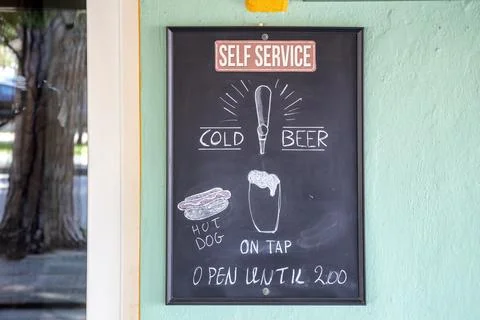 SELF SERVICE
COLD BEER
HOT
DOG
ON TAP
OPEN UNTIL 2.00